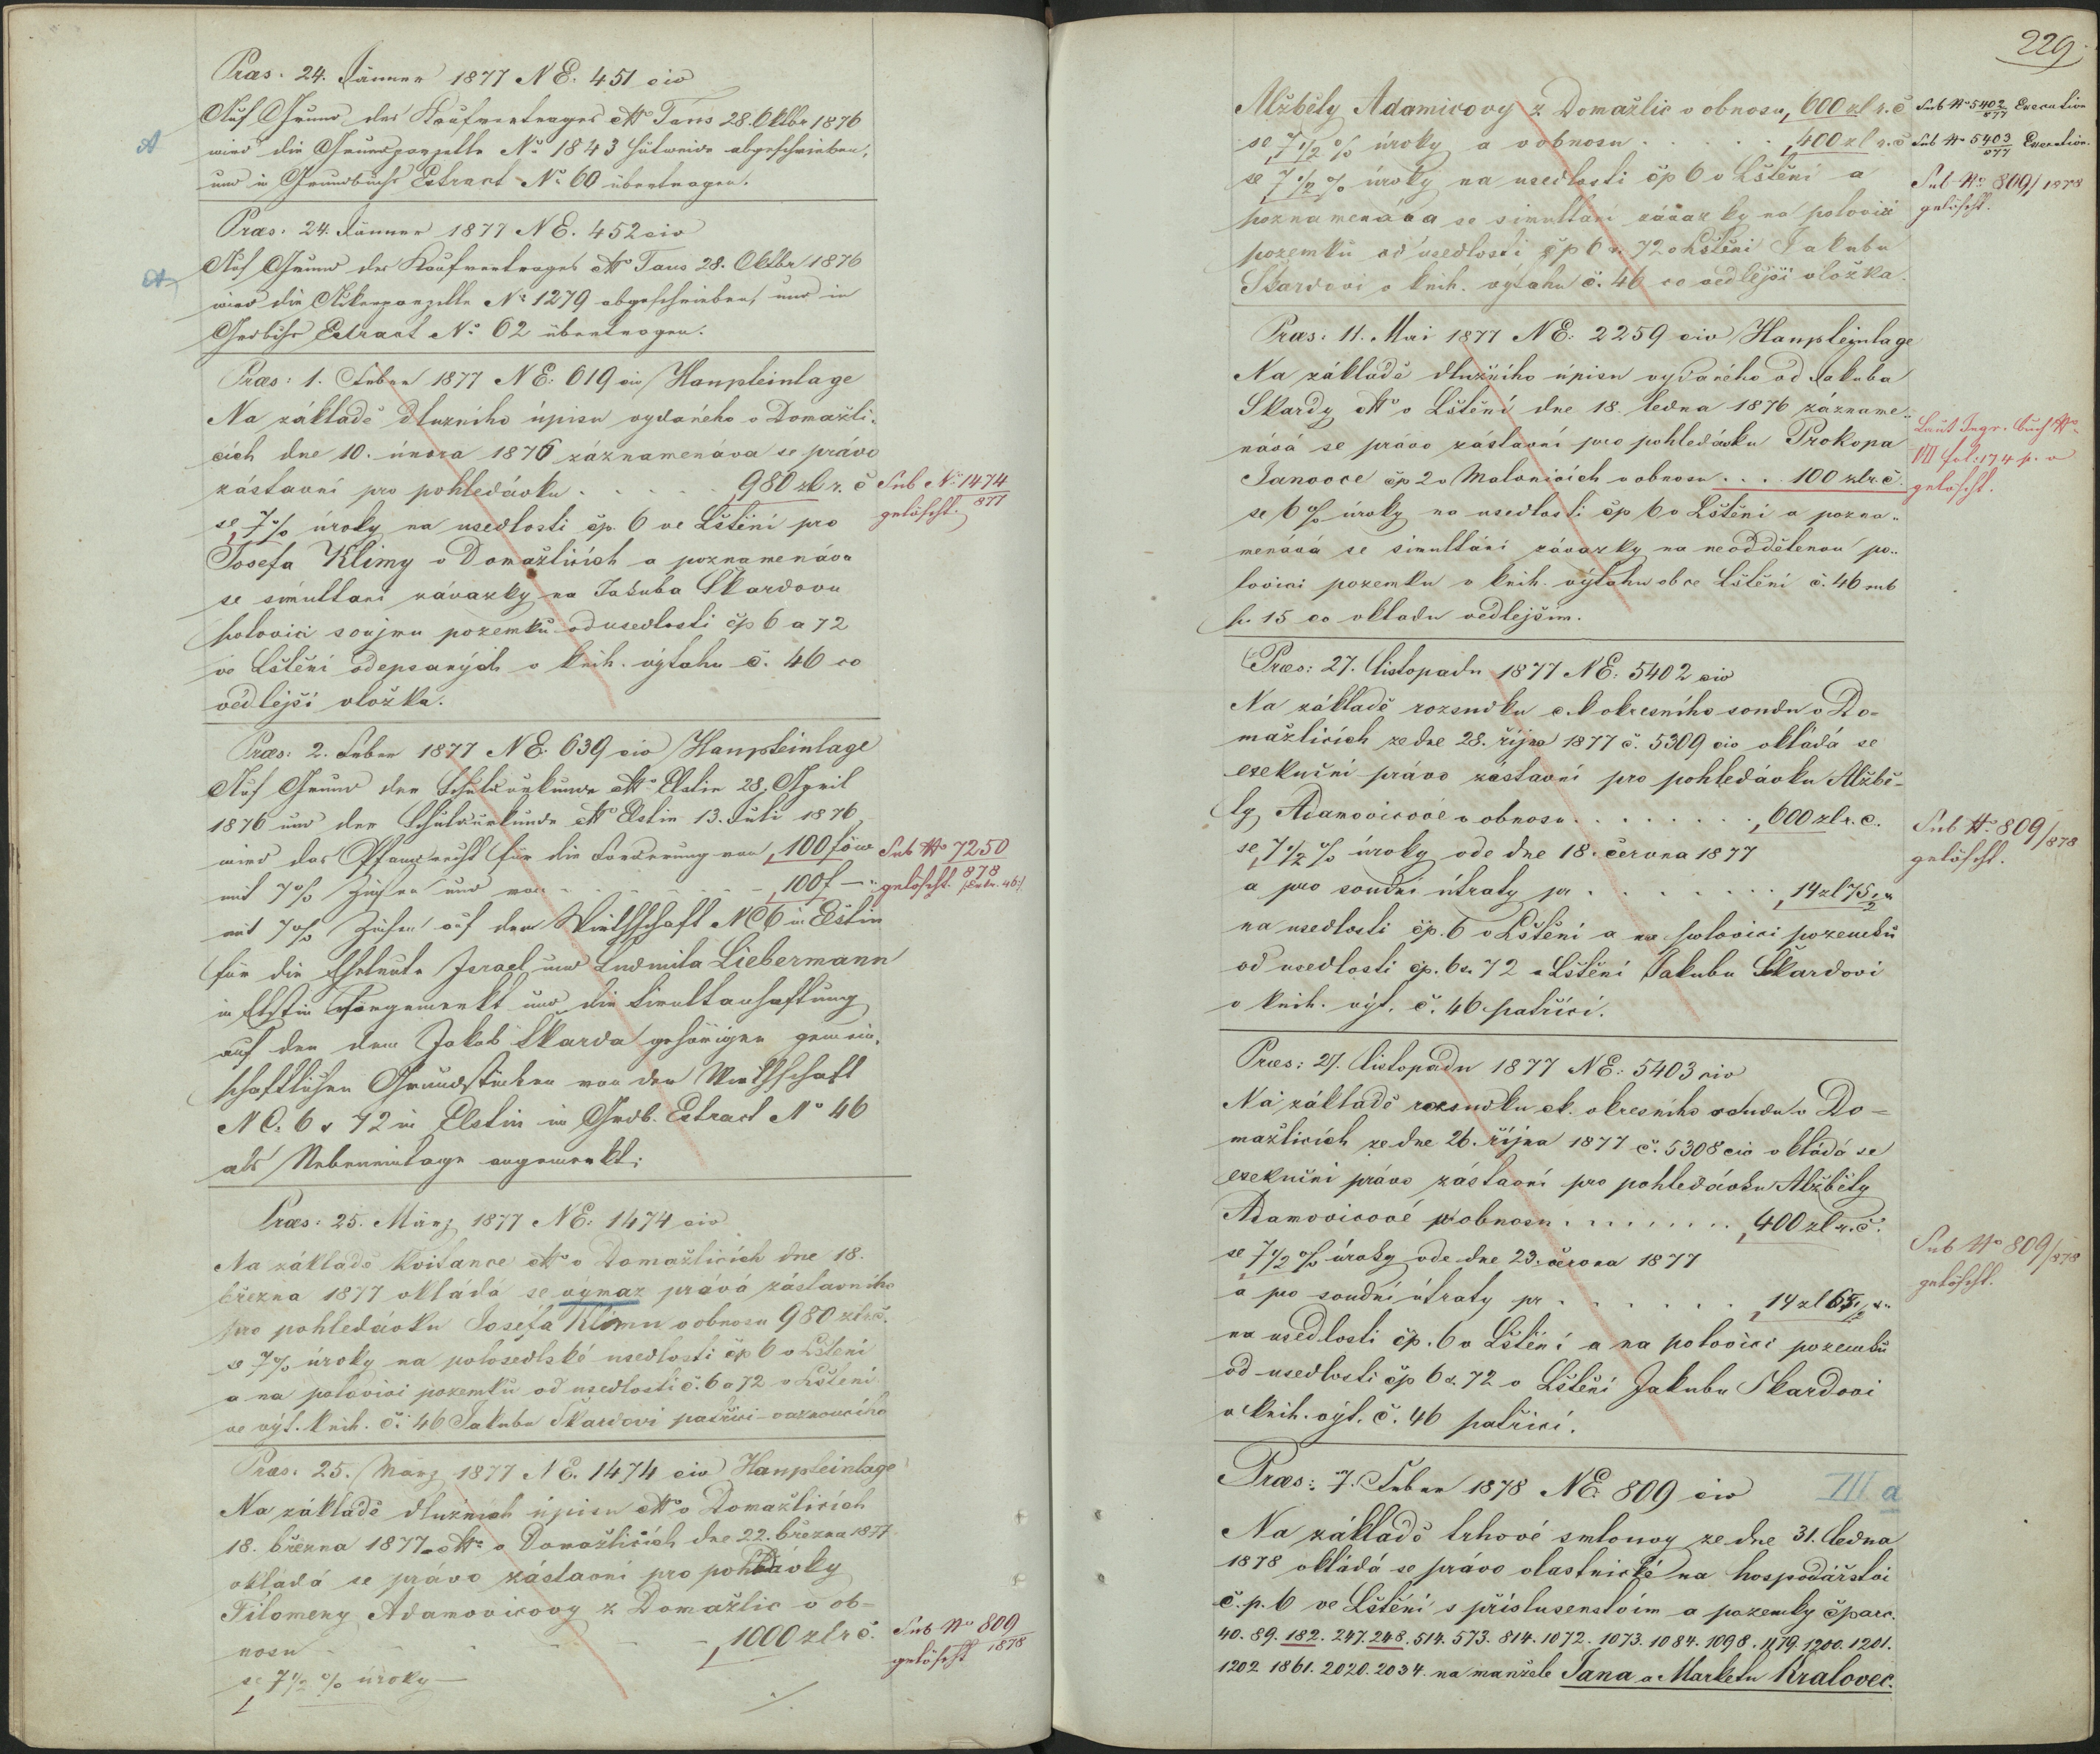 Præs. 24. Jänner 1877 NE. 451 civ
Auf Grund des Kaufvertrages dtto Taus 28. Oktbr 1876
wird die Grundparzelle No 1843 Hutweide abgeschrieben,
und in Grundbuchs Extract No 60 übertragen.
Præs. 24. Jänner 1877 NE. 452 civ
Auf Grund des Kaufvertrages dtto Taus 28. Oktbr 1876
wird die Ackerparzelle No 1279 abgeschrieben, und in
Grdbchs Extract No 62 übertragen.
Præs: 1. Feber 1877 NE: 619 civ Haupteinlage
Na základě dlužního úpisu vydaného v Domažli-
cích dne 10. února 1876 záznamenáva se právo
zástavní pro pohledávku . . . . . 980 zl r. č
se 7% úroky na usedlosti čp. 6 ve Lštění pro
Josefa Klimy v Domažlicích a poznamenáva
se simultani závazky na Jakuba Skardovu
polovici soujmu pozemků od usedlosti čp 6 a 72
ve Lštění odepsaných v knih. výtahu č. 46 co
vedlejší vložka.
Sub No 1474/877
gelöscht.
Præs: 2. Feber 1877 NE. 639 civ Haupteinlage
Auf Grund der Schuldurkunde dtto Elstin 28. April
1876 und der Schuldurkunde dtto Elstin 13. Juli 1876
wird das Pfandrecht für die Forderung von 100 f öw
mit 7% Zinsen und von . . . . . 100 f —
mit 7% Zinsen auf der Wirthschaft NC 6 in Elstin
für die Eheleute Israel und Ludmila Liebermann
in Elstin vorgemerkt und die Simultanhaftung
auf den dem Jakob Skarda gehörigen gemein-
schaftlichen Grundstücken von der Wirthschaft
NC. 6 & 72 in Elstin in Grdb. Extract No 46
als Nebeneinlage angemerkt.
Sub No 7250/878
gelöscht.
Præs: 25. März 1877 NE: 1474 civ
Na základě kvitance dtto v Domažlicích dne 18.
března 1877 vkládá se výmaz práva zástavního
pro pohledávku Josefa Klimu v obnosu 980 zl r. č.
se 7% úroky na polosedlské usedlosti čp 6 v Lštění
a na polovici pozemků od usedlosti č. 6 a 72 v Lštění
ve výt. knih. či 46 Jakubu Škardovi patřici váznoucího
Præs. 25. März 1877 NE. 1474 civ Haupteinlage
Na základě dlužních úpisu dtto v Domažlicích
18. března 1877 a dtto v Domažlicích dne 22. března 1877
vkládá se právo zástavní pro pohledávky
Filomeny Adamovicovy z Domažlic v ob-
nosu . . . . . 1000 zl r č.
se 7 1/2 % úroky
Sub No 809/1878
gelöscht
229.
Alžběty Adamicovy z Domažlic v obnosu 600 zl r. č
se 7 1/2 % úroky a v obnosu . . . . . 400 zl r. č
se 7 1/2 % úroky na usedlosti čp 6 v Lštění a
poznamenává se simultání závazky na polovici
pozemků od usedlosti čp 6 a. 72 v Lštění Jakubu
Škardovi v knih. výtahu č. 46 co vedlejší vložka.
Sub No 5402/877 Execution
Sub No 5403/877 Execution.
Sub No 809/1878
gelöscht.
Præs: 11. Mai 1877 NE: 2259 civ Haupteinlage
Na základě dlužního úpisu vydaného od Jakuba
Skardy dtto v Lštění dne 18. ledna 1876 zázname-
nává se právo zástavní pro pohledávku Prokopa
Janovce čp 2 v Malonicích v obnosu . . . . 100 zl r. č.
se 6% úroky na usedlosti čp 6 v Lštění a pozna-
menává se simultání závazky na neoddělenou po-
lovici pozemku v knih. výtahu obce Lštění č. 46 sub
p. 15 co vkladu vedlejším.
Laut Ingr. Buch No
VII fol. 174 p. v
gelöscht.
Præs: 27. listopadu 1877 NE: 5402 civ
Na základě rozsudku c. k okresního soudu v Do-
mažlicích ze dne 28. října 1877 č. 5309 civ vkládá se
exekuční právo zástavní pro pohledávku Alžbě-
ty Adamovicové v obnosu . . . . . . . . 600 zl r. č.
se 7 1/2 % úroky ode dne 18. června 1877
a pro soudní útraty pr . . . . . . . 14 zl 75 1/2 x
na usedlosti čp. 6 v Lštění a na polovici pozemků
od usedlosti čp. 6 a. 72 v Lštění Jakubu Škardovi
v knih. výt. č. 46 patřící.
Sub No. 809/878
gelöscht.
Præs: 27. listopadu 1877 NE: 5403 civ
Na základě rozsudku ck. okresního soudu v Do-
mažlicích ze dne 26. října 1877 č. 5308 civ vkládá se
exekuční právo zástavní pro pohledávku Alžběty
Adamovicové v obnosu . . . . . . . . 400 zl r. č.
se 7 1/2 % úroky ode dne 23. června 1877
a pro soudní útraty pr . . . . . . 14 zl 65 1/2 x
na usedlosti čp. 6 v Lštění a na polovici pozemků
od usedlosti čp 6 & 72 v Lštění Jakubu Skardovi
v knih. výt. č. 46 patřící.
Sub No 809/878
gelöscht.
Præs: 7. Feber 1878 NE. 809 civ III a
Na základě trhové smlouvy ze dne 31. ledna
1878 vkládá se právo vlastnické na hospodářství
č. p. 6 ve Lštění s příslusenstvím a pozemky čparc.
40. 89. 182. 247. 248. 514. 573. 814. 1072. 1073. 1084. 1098. 1179. 1200. 1201.
1202. 1861. 2020. 2034. na manžele Jana a Marketu Kralovec.